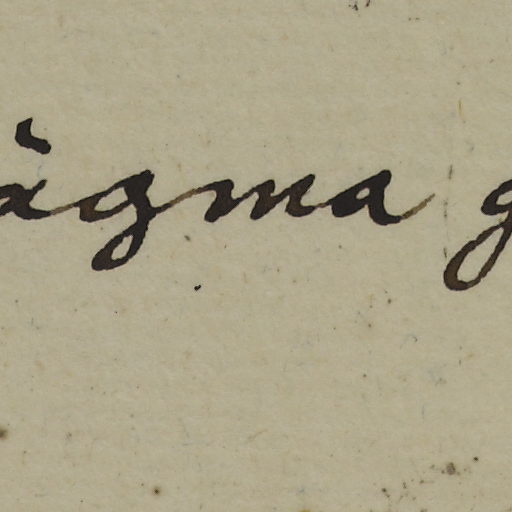 àgma g